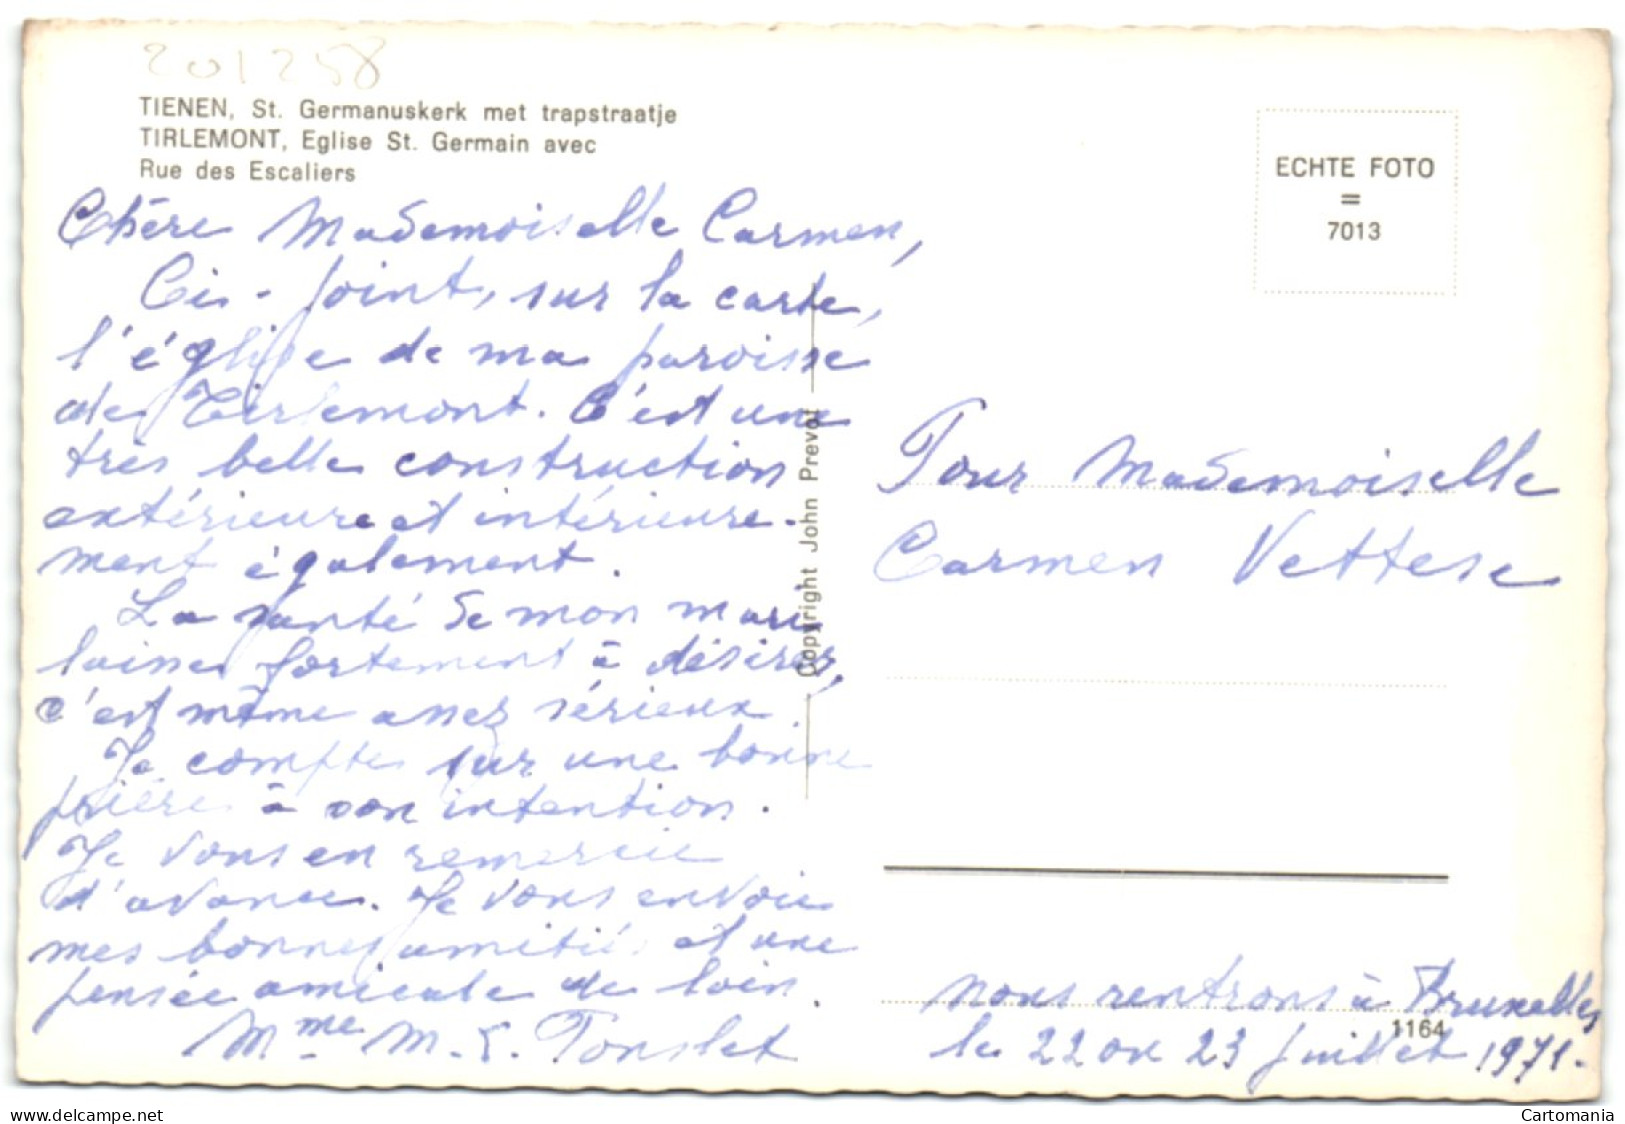 201258
TIENEN, St. Germanuskerk met trapstraatje
TIRLEMONT, Eglise St. Germain avec
Rue des Escaliers
Chère Mademoiselle Carmen,
Ci-joint, sur la carte,
l'église de ma paroisse
de Tirlemont. C'est une
très belle construction
extérieure et intérieure-
ment également.
La santé de mon mari
laisse fortement à désirer,
c'est même assez sérieux.
Je compte sur une bonne
prière à son intention.
Je vous en remercie
d'avance. Je vous envoie
mes bonnes amitiés et une
pensée amicale de loin.
Mme M. E. Ponslet
Copyright John Prevot
ECHTE FOTO
=
7013
Pour Mademoiselle
Carmen Vettese
nous rentrons à Bruxelles
1164
le 22 ou 23 juillet 1971.
Cartomania
delcampe.net